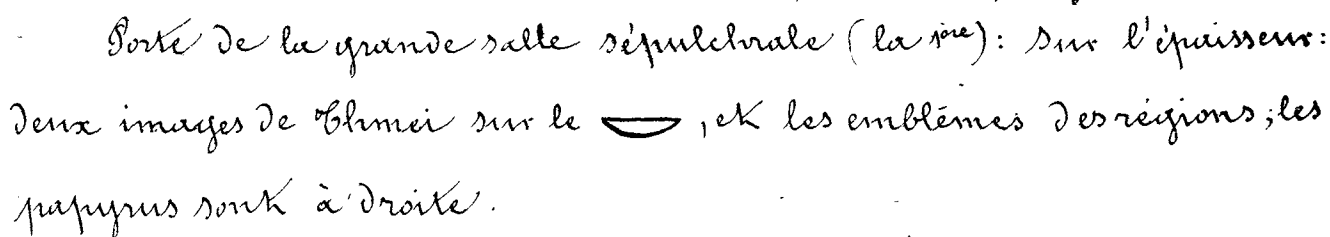 Porte de la grande salle sépulchrale (la 1ère): sur l'épaisseur:
deux images de Thmei sur le 𓎟, et les emblêmes des régions; les
papyrus sont à droite.